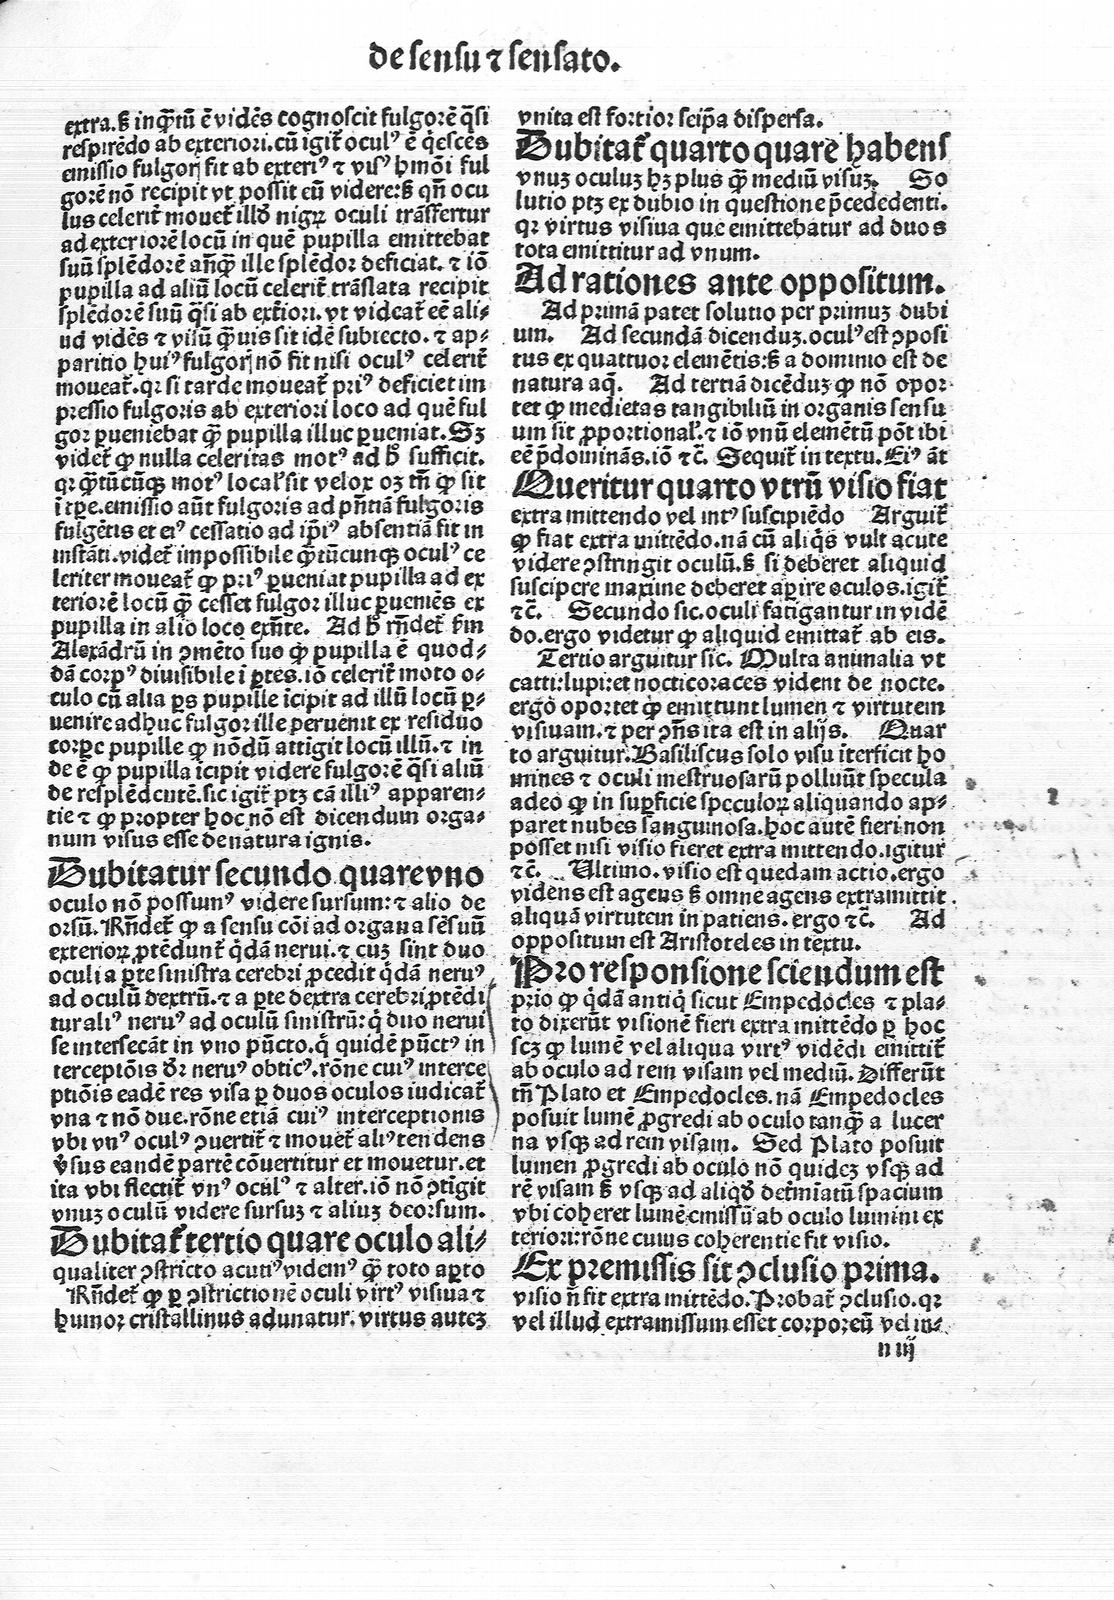 de sensu ⁊ sensato.
extra. ß inq̃tũ ẽ vidẽs cognoscit fulgorẽ q̃si
respirẽdo ab exteriori. cũ igit̃ oculꝰ ẽ q̃escẽs
emissio fulgorꝭ fit ab exteriꝰ ⁊ visꝰ hmõi ful
gorẽ nõ recipit vt possit eũ videre: ß qñ ocu
lus celerit̃ mouet̃ illď nigrꝝ oculi trãsfertur
ad exteriorẽ locũ in quẽ pupilla emittebat
suũ splẽdorẽ añq̃ ille splẽdor deficiat. ⁊ iõ
pupilla ad aliũ locũ celerit̃ trãslata recipit
splẽdorẽ suũ q̃si ab ext̃iori. vt videat̃ eẽ ali⸗
ud vidẽs ⁊ visũ q̃uis sit idẽ subiecto. ⁊ ap⸗
paritio huiꝰ fulgorꝭ nõ fit nisi oculꝰ celerit̃
moueat̃. qꝛ si tarde moueat̃ priꝰ deficiet im
pressio fulgoris ab exteriori loco ad quẽ ful
gor ꝑueniebat q̃ pupilla illuc ꝑueniat. Sꝫ
videt̃ ꝙ nulla celeritas motꝰ ad ħ sufficit.
qꝛ q̃tũcũqꝫ motꝰ localꝭ sit velox oꝫ tñ ꝙ sit
ĩ tꝑe. emissio aũt fulgoris ad pñtiã fulgoris
fulgẽtis et eiꝰ cessatio ad ip̃iꝰ absentiã fit in
instãti. videt̃ impossibile q̃tũcunqꝫ oculꝰ ce
leriter moueat̃ ꝙ priꝰ ꝑueniat pupilla ad ex
teriorẽ locũ q̃ cesset fulgor illuc ꝑueniẽs ex
pupilla in alio loco exñte. Ad ħ rñdet̃ ẜm
Alexãdrũ in ꝯmẽto suo ꝙ pupilla ẽ quod⸗
dã corpꝰ diuisibile ĩ ꝑtes. iõ celerit̃ moto o⸗
culo cũ alia ꝑs pupille ĩcipit ad illũ locũ ꝑ⸗
uenire adhuc fulgor ille peruenit ex residuo
corpe pupille ꝙ nõdũ attigit locũ illũ. ⁊ in
de ẽ ꝙ pupilla ĩcipit videre fulgorẽ q̃si aliũ
de resplẽdentẽ. sic igit̃ ptꝫ cã illiꝰ apparen⸗
tie ⁊ ꝙ propter hoc nõ est dicendum orga⸗
num visus esse de natura ignis.
Dubitatur secundo quare vno
oculo nõ possumꝰ videre sursum: ⁊ alio de
orsũ. Rñdet̃ ꝙ a sensu cõi ad organa sẽsuũ
exteriorꝝ ꝓtẽdunt̃ q̇dã nerui. ⁊ cuꝫ sint duo
oculi a ꝑte sinistra cerebri ꝓcedit q̇dã neruꝰ
ad oculũ dextrũ. ⁊ a ꝑte dextra cerebri ꝓtẽdi
tur aliꝰ neruꝰ ad oculũ sinistrũ: q̇ duo nerui
se intersecãt in vno pũcto. q̇ quidẽ pũctꝰ in
terceptionis dr̃ neruꝰ obticꝰ. rõne cuiꝰ interce
ptiõis eadẽ res visa ꝑ duos oculos iudicat̃
vna ⁊ nõ due. rõne etiã cuiꝰ interceptionis
vbi vnꝰ oculꝰ ꝯuertit̃ ⁊ mouet̃ aliꝰ tendens
v̓sus eandẽ partẽ cõuertitur et mouetur. et
ita vbi flectit̃ vnꝰ oculꝰ ⁊ alter. iõ nõ ꝯtĩgit
vnuꝫ oculũ videre sursuꝫ ⁊ aliuꝫ deorsum.
Dubitat̃ tertio quare oculo ali⸗
qualiter ꝯstricto acutiꝰ videmꝰ q̃ toto aꝑto
Rñdet̃ ꝙ ꝑ ꝯstrictionẽ oculi virtꝰ visiua ⁊
humor cristallinus adunatur. virtus auteꝫ
vnita est fortior seip̃a dispersa.
Dubitat̃ quarto quare habens
vnuꝫ oculuꝫ hꝫ plus q̃ mediũ visuꝫ. So
lutio ptꝫ ex dubio in questione p̃cededenti.
qꝛ virtus visiua que emittebatur ad duos
tota emittitur ad vnum.
Ad rationes ante oppositum.
Ad primã patet solutio per primuꝫ dubi
um. Ad secundã dicenduꝫ. oculꝰ est ꝯposi
tus ex quattuor elemẽtis: ß a dominio est de
natura aq̃. Ad tertiã dicẽduꝫ ꝙ nõ opor
tet ꝙ medietas tangibiliũ in organis sensu
um sit ꝓportionalꝭ. ⁊ iõ vnũ elemẽtũ põt ibi
eẽ p̃dominãs. iõ ⁊c̃. Sequit̃ in textu. Eiꝰ ãt
Queritur quarto vtrũ visio fiat
extra mittendo vel intꝰ suscipiẽdo Arguit̃
ꝙ fiat extra mittẽdo. nã cũ aliq̇s vult acute
videre ꝯstringit oculũ. ß si deberet aliquid
suscipere maxime deberet aꝑire oculos. igit̃
⁊c̃. Secundo sic. oculi fatigantur in vidẽ
do. ergo videtur ꝙ aliquid emittat̃ ab eis.
Tertio arguitur sic. Multa animalia vt
catti: lupi: et nocticoraces vident de nocte.
ergo oportet ꝙ emittunt lumen ⁊ virtutem
visiuam. ⁊ per ꝯñs ita est in alijs. Quar
to arguitur. Basiliscus solo visu ĩterficit ho
mines ⁊ oculi mẽstruosarũ polluũt specula
adeo ꝙ in suꝑficie speculorꝝ aliquando ap⸗
paret nubes sanguinosa. hoc autẽ fieri non
posset nisi visio fieret extra mittendo. igitur
⁊c̃. Ultimo. visio est quedam actio. ergo
videns est agens ß omne agens extramittit
aliquã virtutem in patiens. ergo ⁊c̃. Ad
oppositum est Aristoteles in textu.
Pro responsione sciendum est
prio ꝙ q̇dã antiq̇ sicut Empedocles ⁊ pla⸗
to dixerũt visionẽ fieri extra mittẽdo ꝑ hoc
scꝫ ꝙ lumẽ vel aliqua virtꝰ vidẽdi emittit̃
ab oculo ad rem visam vel mediũ. Differũt
tñ Plato et Empedocles. nã Empedocles
posuit lumẽ ꝓgredi ab oculo tanq̃ a lucer
na vsqꝫ ad rem visam. Sed Plato posuit
lumen ꝓgredi ab oculo nõ quideꝫ vsqꝫ ad
rẽ visam ß vsqꝫ ad aliqď det̃miatũ spacium
vbi coheret lumẽ emissũ ab oculo lumini ex
teriori: rõne cuius coherentie fit visio.
Ex premissis sit ꝯclusio prima.
visio ñ fit extra mittẽdo. Probat̃ ꝯclusio. qꝛ
vel illud extramissum esset corporeũ vel in⸗
n iij